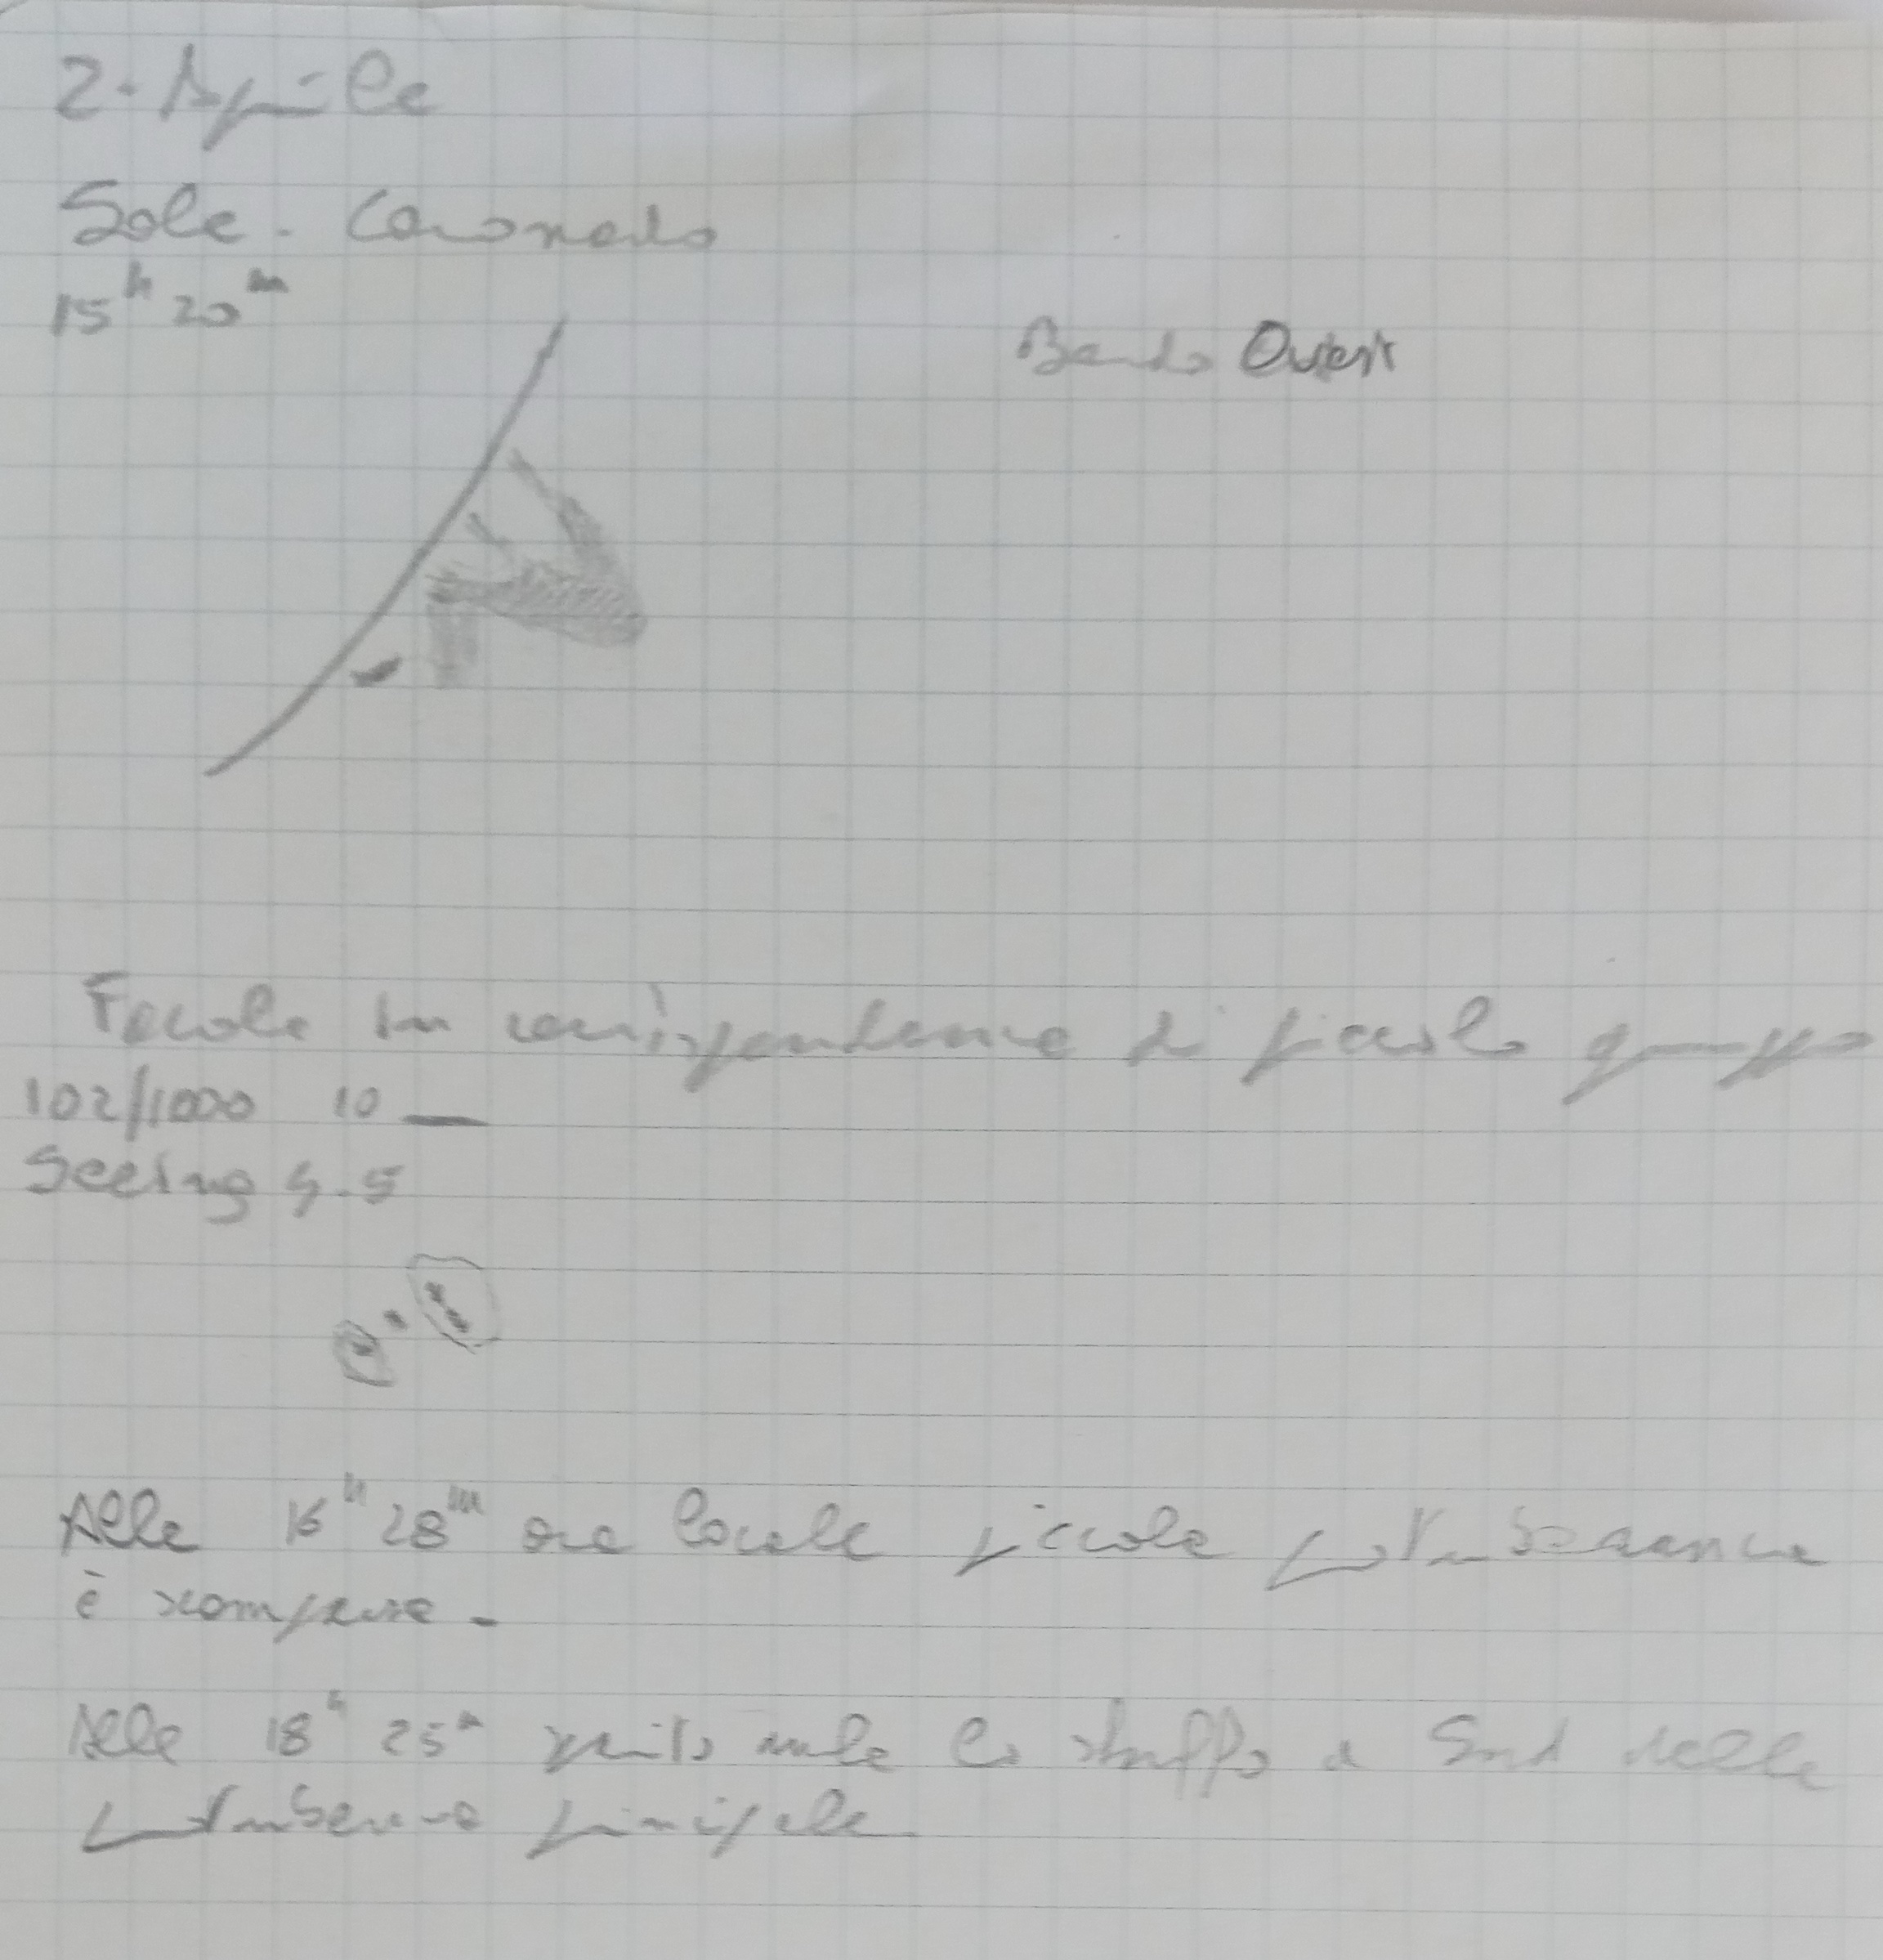 2. Aprile
Sole. Coronado
15h 20m
Bordo Ovest
Facole in corrispondenza di piccolo gruppo
102/1000 10
Seeing 4-5
Alle 16h 28m ora locale piccola protuberanza
è scomparsa.
Alle 18h 25m sparito anche lo sbuffo a Sud della
protuberanza principale